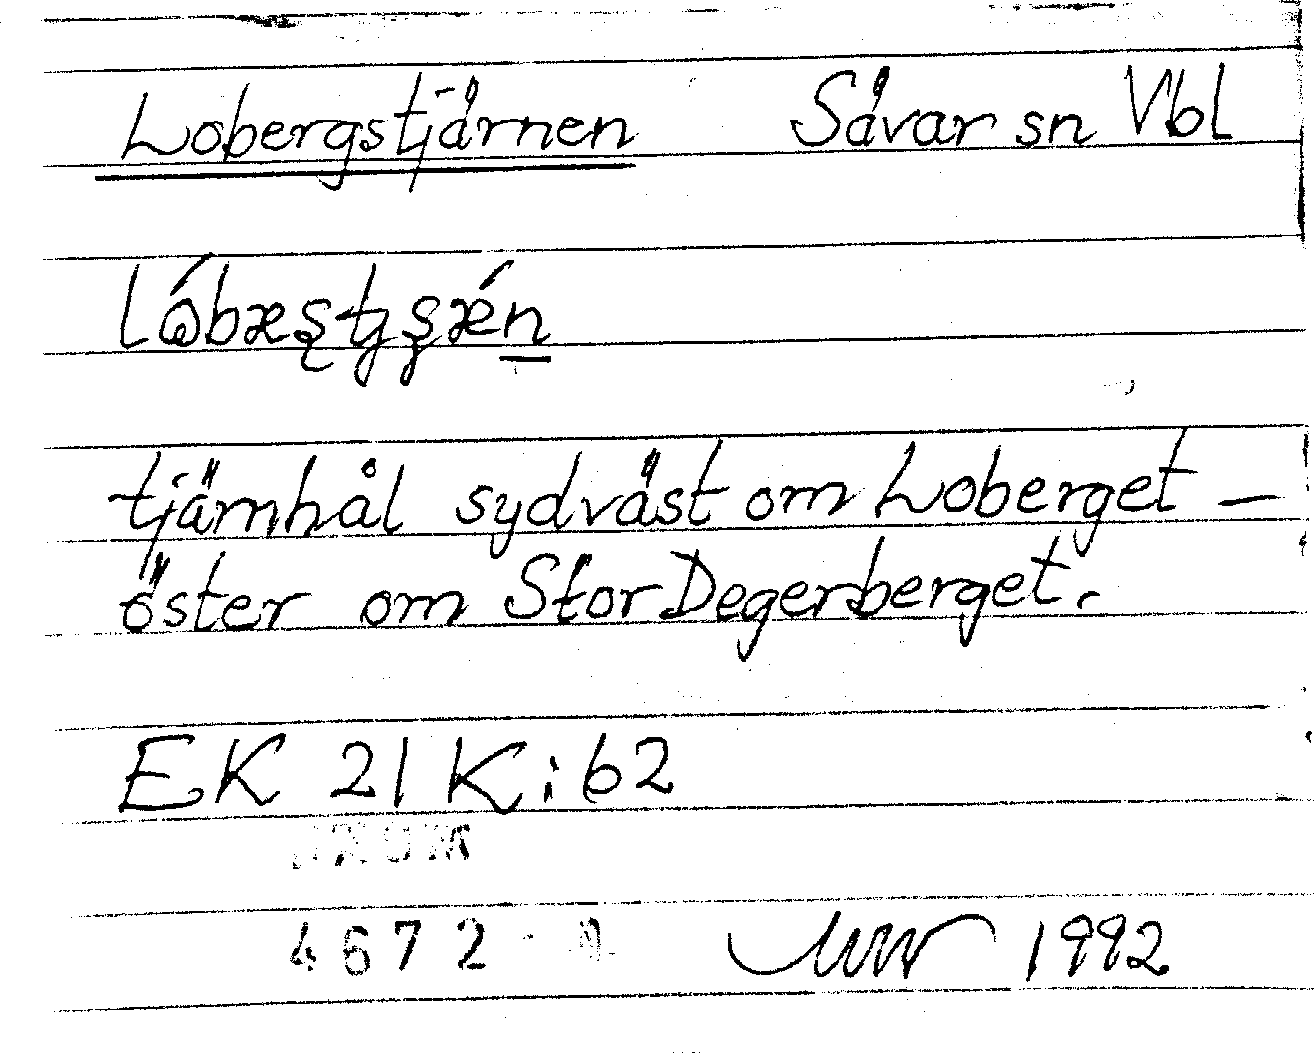 Lobergstjärnen Sävar sn Vbl
tjärnhål sydväst om Loberget –
öster om StorDegerberget.
EK 21 K:62
4672
1992